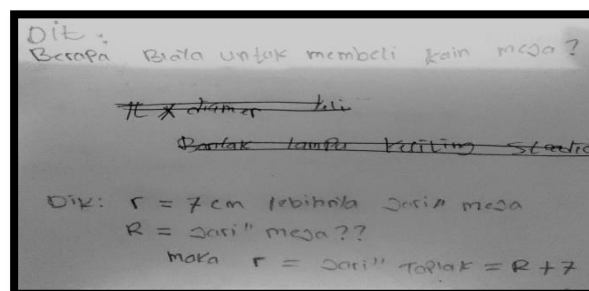 Dit :
Berapa Biaya untuk membeli kain meja ?
π x diamer
Banyak lampu keliling
Dik: r = 7 cm lebihnya jari" meja
R = jari" meja ??
maka r = jari" Taplak = R + 7